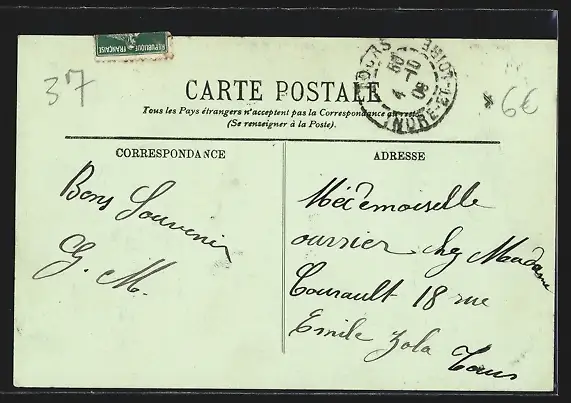 REPUBLIQUE FRANÇAISE
37
CARTE POSTALE
Tous les Pays étrangers n'acceptent pas la Correspondance au recto
(Se renseigner à la Poste).
TOURS
4 -10
08
INDRE-ET-LOIRE
* 6€
CORRESPONDANCE
Bons Souvenir
G. M.
ADRESSE
Médemoiselle
ourrier chez Madame
Courault 18 rue
Emile Zola Tours